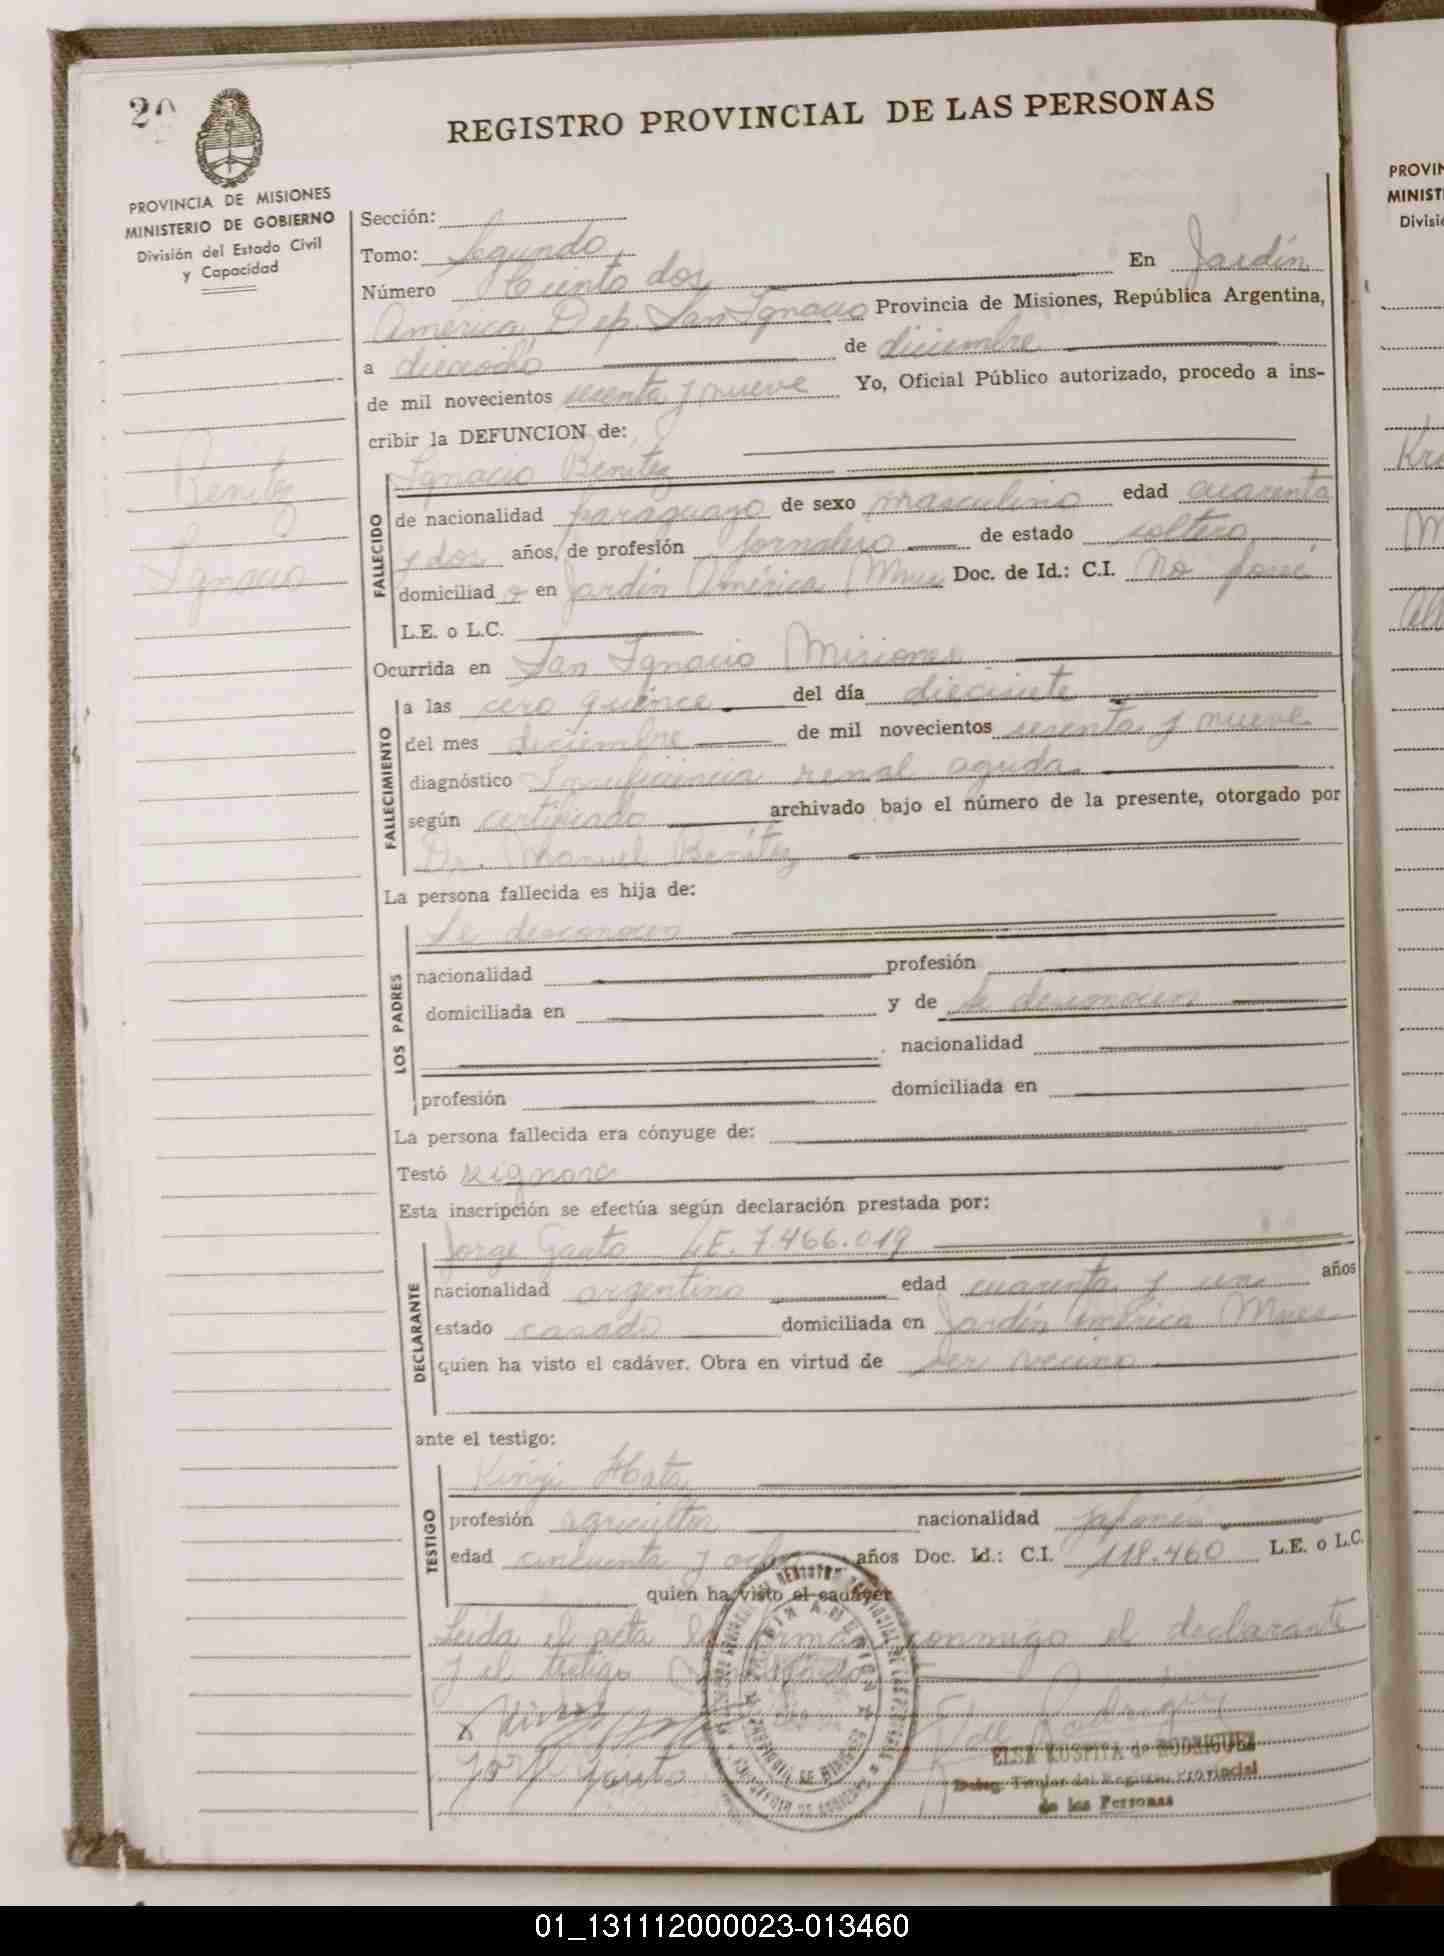 20
REGISTRO PROVINCIAL DE LAS PERSONAS
PROVINCIA DE MISIONES
MINISTERIO DE GOBIERNO
División del Estado Civil
y Capacidad
Sección:
Tomo: Segundo
Número Ciento dos En Jardín
América Dep. San Ignacio Provincia de Misiones, República Argentina,
a dieciocho de diciembre
de mil novecientos sesenta y nueve Yo, Oficial Público autorizado, procedo a ins-
cribir la DEFUNCION de:
Benitez
Ignacio
FALLECIDO
Ignacio Benitez
de nacionalidad paraguayo de sexo masculino edad cuarenta
y dos años, de profesión jornalero de estado soltero
domiciliad o en Jardín América Mnes Doc. de Id.: C.I. No posee
L.E. o L.C.
Ocurrida en San Ignacio Misiones
FALLECIMIENTO
a las cero quince del día diecisiete
del mes diciembre de mil novecientos sesenta y nueve
diagnóstico Insuficiencia renal aguda
según certificado archivado bajo el número de la presente, otorgado por
Dr. Manuel Benitez
La persona fallecida es hija de:
LOS PADRES
Se desconocen
nacionalidad profesión
domiciliada en y de Se desconocen
nacionalidad
profesión domiciliada en
La persona fallecida era cónyuge de:
Testó se ignora
Esta inscripción se efectúa según declaración prestada por:
DECLARANTE
Jorge Gauto L.E. 7.466.019
nacionalidad argentino edad cuarenta y un años
estado casado domiciliada en Jardín América Mnes
quien ha visto el cadáver. Obra en virtud de ser vecino
ante el testigo:
TESTIGO
Kinji Hata
profesión agricultor nacionalidad japonés
edad cincuenta y ocho años Doc. Id.: C.I. 118.460 L.E. o L.C.
quien ha visto el cadáver
Leída el acta la firman conmigo el declarante
y el testigo
Gauto
ELSA KUSPITA de RODRIGUEZ
Deleg. Titular del Registro Provincial
de las Personas
PROVIN
MINIST
Divisió
Kra
01_131112000023-013460